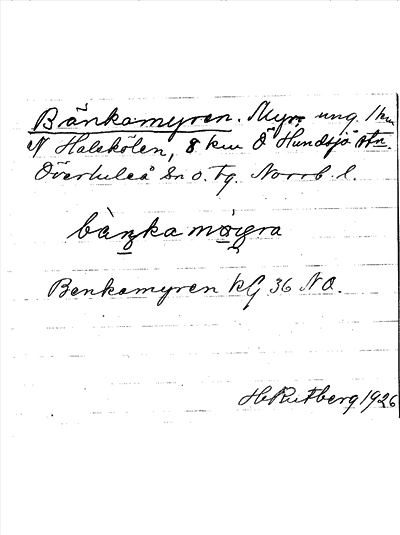 Bänkamyren. Myr, ung. 1 km
N Halskölen, 8 km Ö Hundsjö stn.
Överluleå Sn o. tg. Norrb. l.
bànka mỳra
Benkamyren kG 36 NO.
H. Rutberg 1926